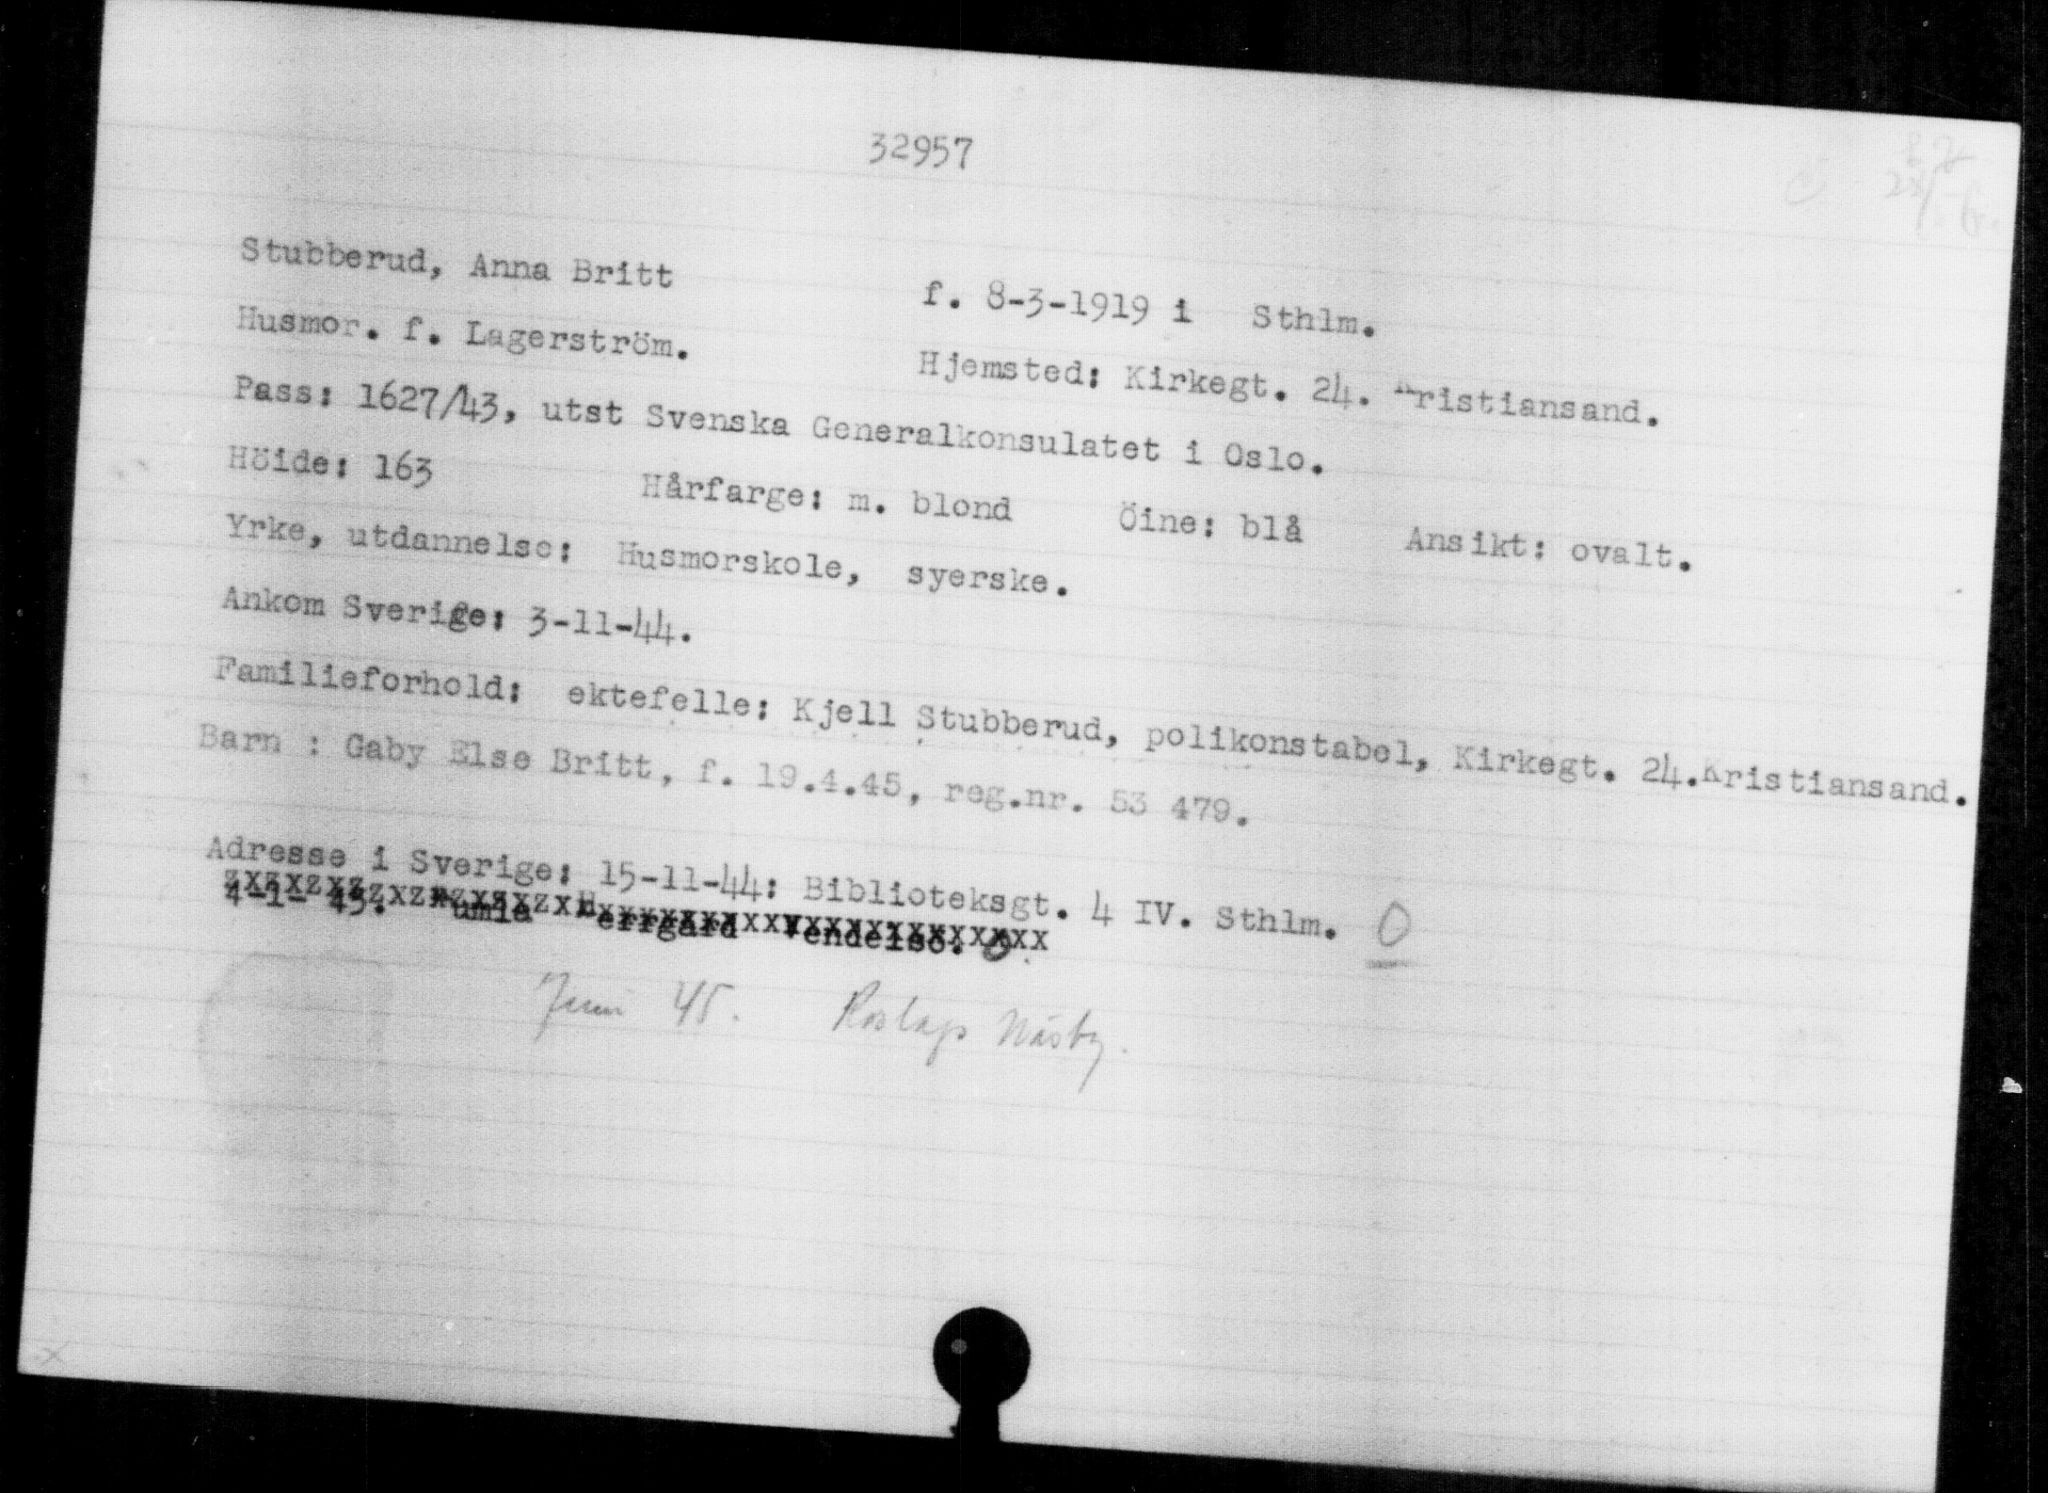 32957
Stubberud, Anna Britt f. 8-3-1919 i Sthlm.
Husmor. f. Lagerström. Hjemsted: Kirkegt. 24. Kristiansand.
Pass: 1627/43, utst Svenska Generalkonsulatet i Oslo.
Höide: 163 Hårfarge: m. blond Öine: blå Ansikt: ovalt.
Yrke, utdannelse: Husmorskole, syerske.
Ankom Sverige: 3-11-44.
Familieforhold: ektefelle: Kjell Stubberud, polikonstabel, Kirkegt. 24. Kristiansand.
Barn : Gaby Else Britt, f. 19.4.45, reg.nr. 53 479.
Adresse i Sverige: 15-11-44: Biblioteksgt. 4 IV. Sthlm. 0
4-1-45. Herrgård Vendelsö. 0
Juni 45. Roslags Näsby.